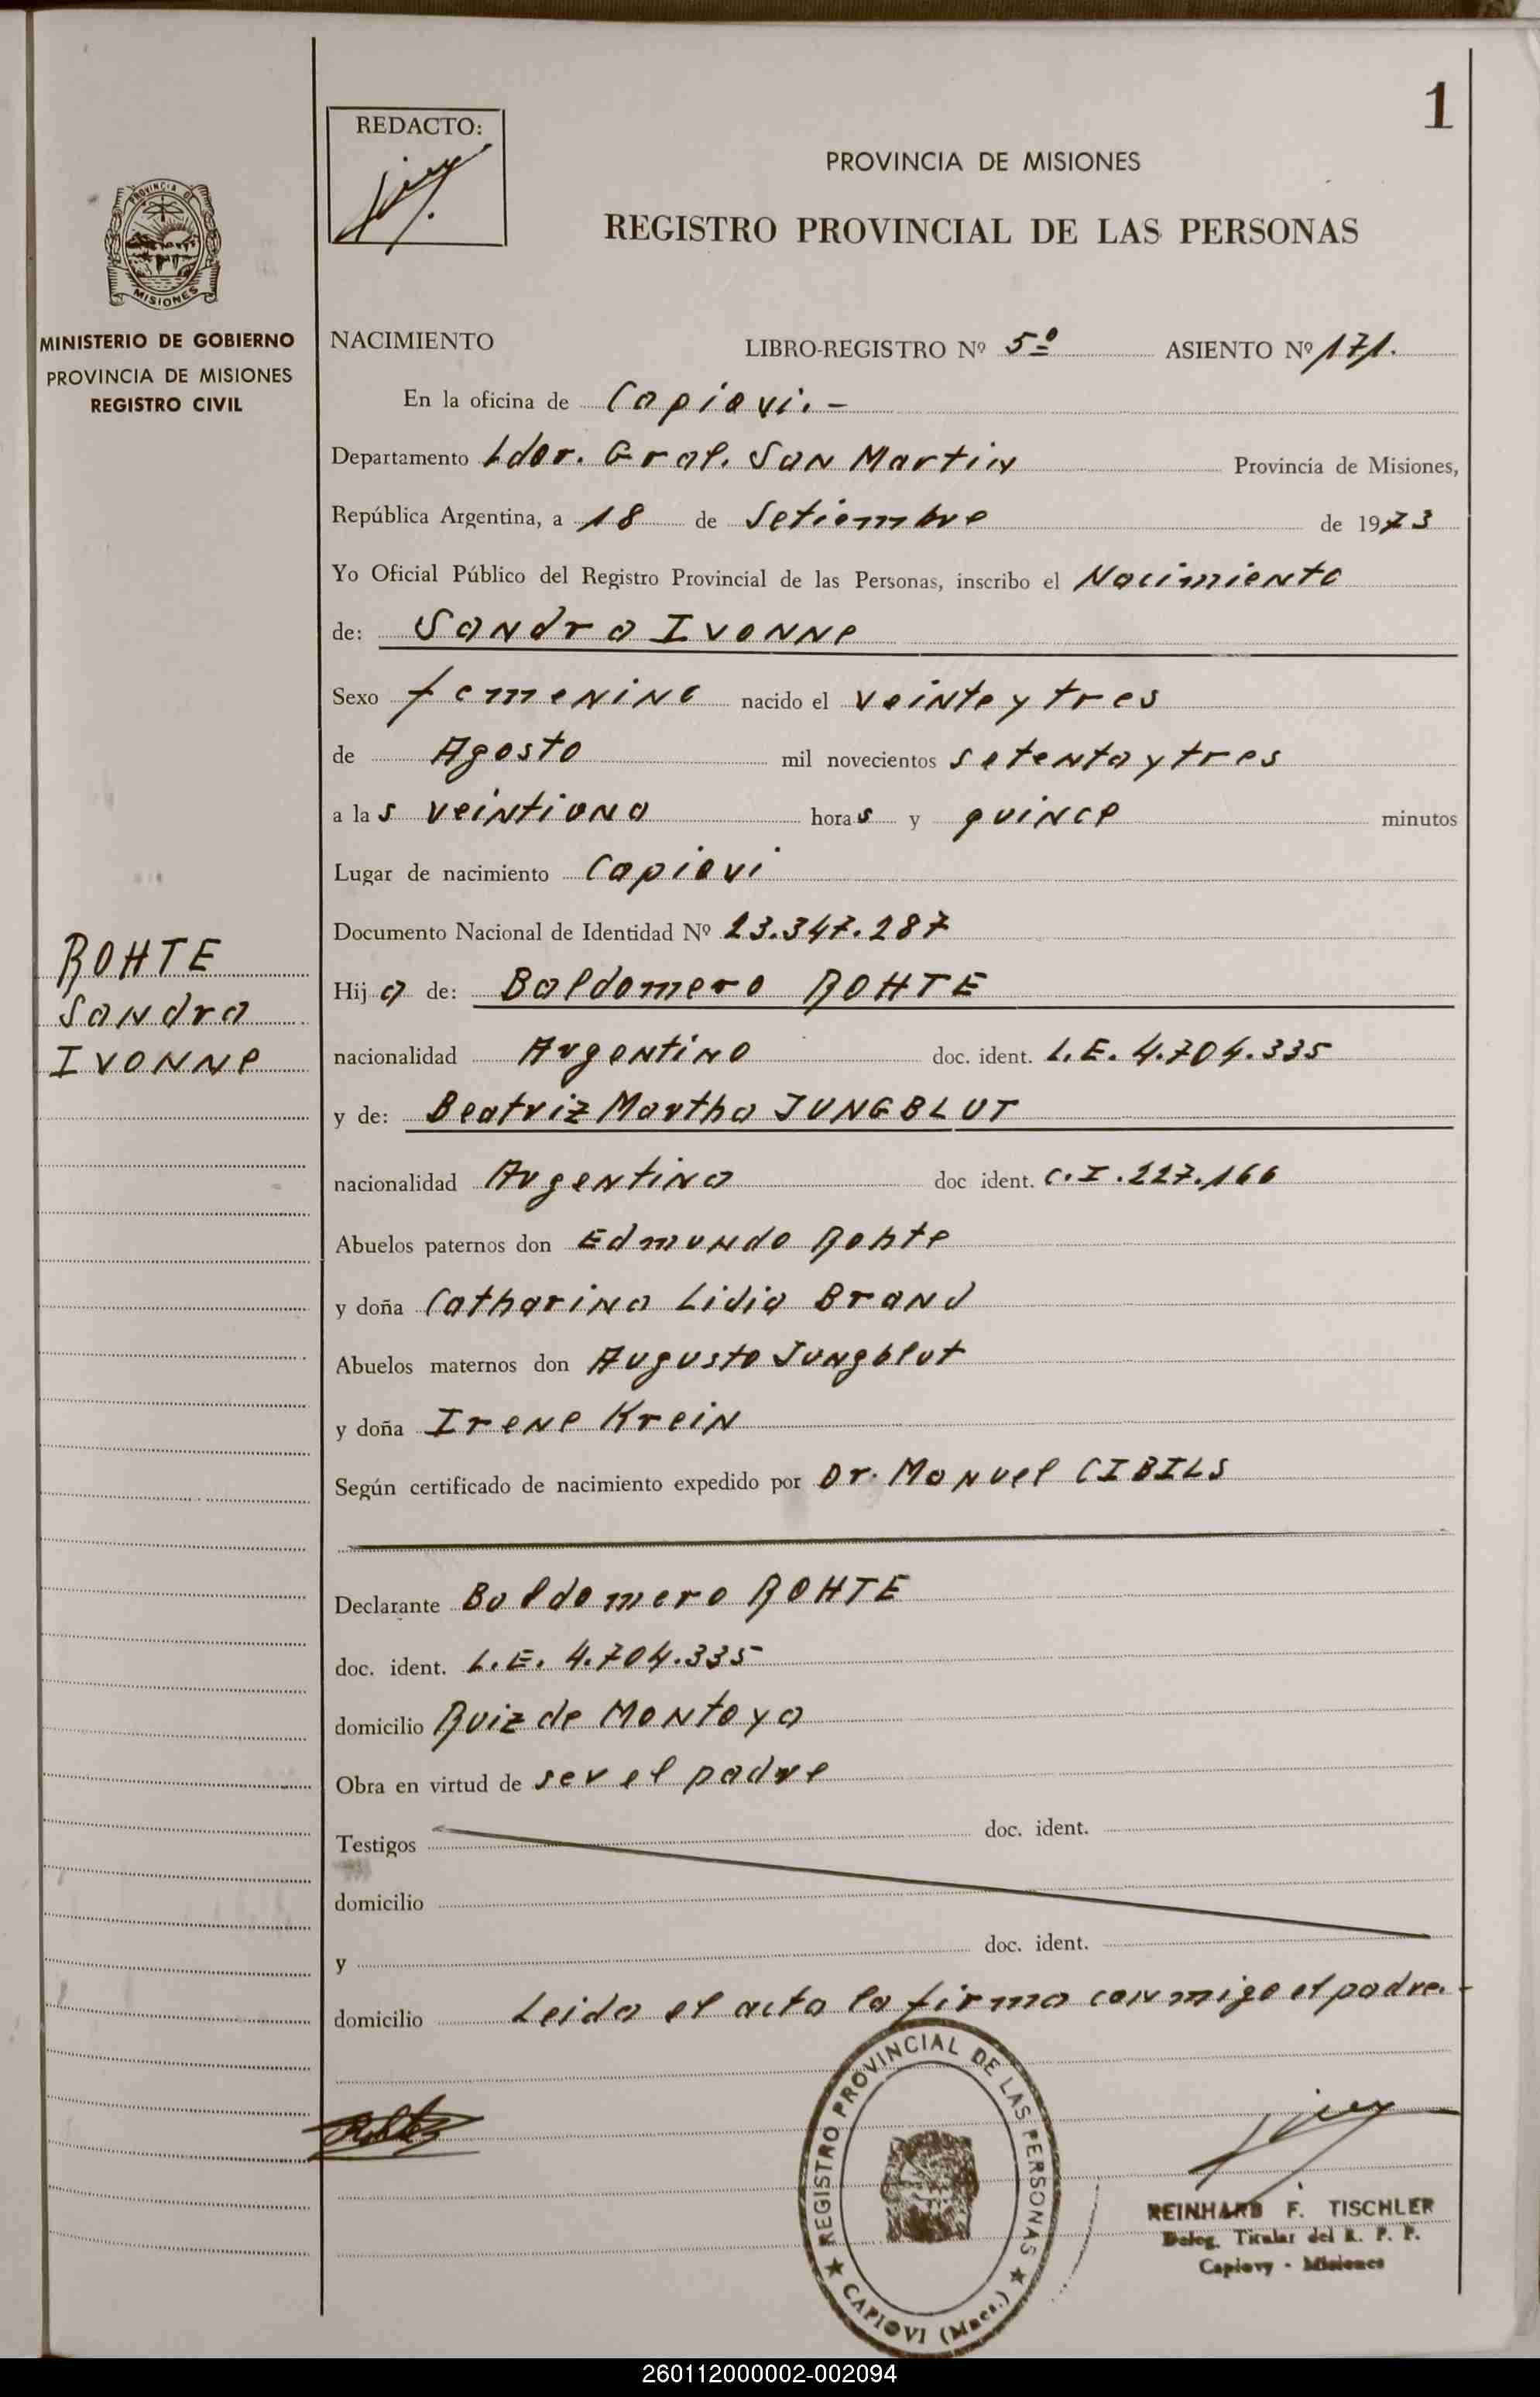 1
REDACTO:
PROVINCIA DE MISIONES
REGISTRO PROVINCIAL DE LAS PERSONAS
PROVINCIA DE
MISIONES
MINISTERIO DE GOBIERNO
PROVINCIA DE MISIONES
REGISTRO CIVIL
NACIMIENTO LIBRO-REGISTRO Nº 5º ASIENTO Nº 171.
En la oficina de Capiovi.-
Departamento Ldor. Gral. San Martin Provincia de Misiones,
República Argentina, a 18 de Setiembre de 1973
Yo Oficial Público del Registro Provincial de las Personas, inscribo el Nacimiento
de: Sandra Ivonne
Sexo femenino nacido el veinte y tres
de Agosto mil novecientos setenta y tres
a las veintiuna horas y quince minutos
Lugar de nacimiento Capiovi
Documento Nacional de Identidad Nº 23.347.287
ROHTE
Sandra
Ivonne
Hija de: Baldomero ROHTE
nacionalidad Argentino doc. ident. L.E. 4.704.335
y de: Beatriz Martha JUNGBLUT
nacionalidad Argentina doc ident. C.I. 227.166
Abuelos paternos don Edmundo Rohte
y doña Catharina Lidia Brand
Abuelos maternos don Augusto Jungblut
y doña Irene Krein
Según certificado de nacimiento expedido por Dr. Manuel CIBILS
Declarante Baldomero ROHTE
doc. ident. L.E. 4.704.335
domicilio Ruiz de Montoya
Obra en virtud de ser el padre
Testigos doc. ident.
domicilio
y doc. ident.
domicilio Leida el acta la firma conmigo el padre.-
REGISTRO PROVINCIAL DE LAS PERSONAS
CAPIOVI (Mnes.)
REINHARD F. TISCHLER
Deleg. Titular del R. P. P.
Capiovy - Misiones
260112000002-002094